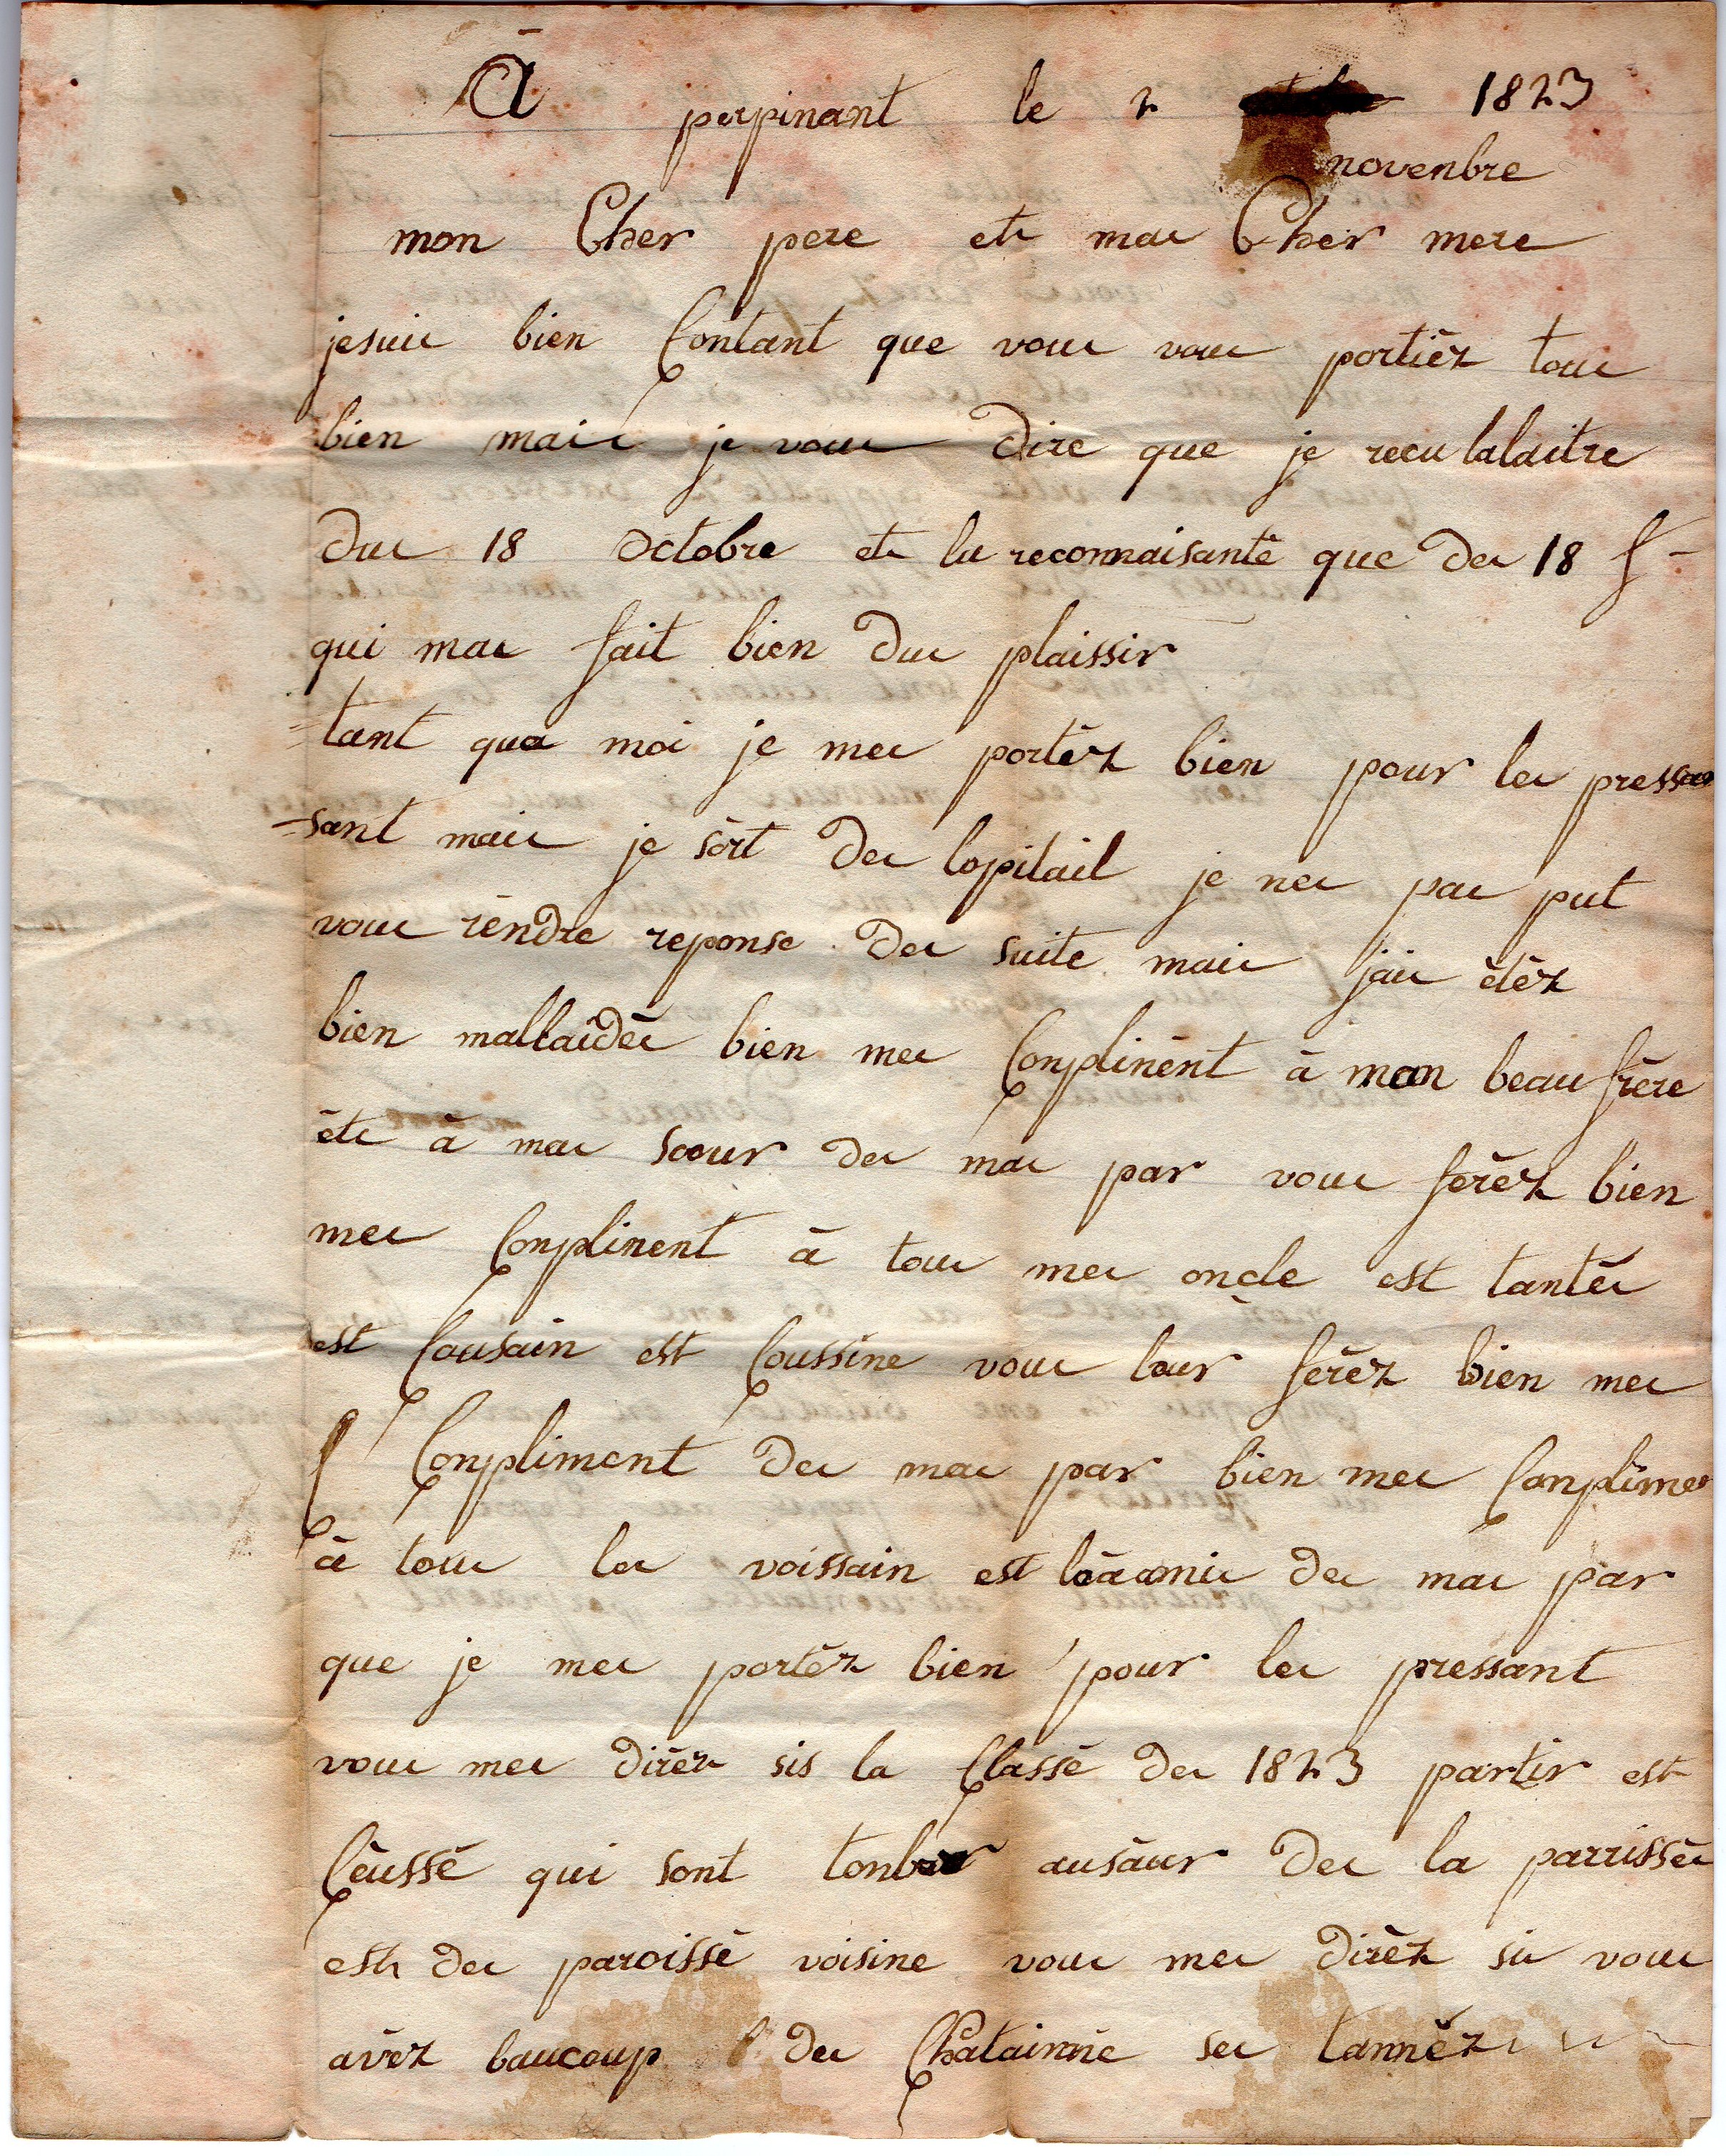 À perpinant le 2 1823
novenbre
mon Cher pere et ma Cher mere
jesuis bien Contant que vous vous portiéz tous
bien mais je vous dire que je recu lalaitre
du 18 octobre et la reconnaisanté que de 18 f
qui ma fait bien du plaissir
tant qua moi je me portéz bien pour le pressa
-sant mais je sòrt de lopitail je ne pas put
vous réndre reponse de suite mais jais étéz
bien mallaidés bien mes Conplinént à mon beau frére
éte à ma soour de ma par vous feréz bien
mes Conplinent à tous mes oncle est tantés
est Cousain est Coussine vous lour feréz bien mes
Conpliment de ma par bien mes Conplime
à tous les voissain est léàamis de ma par
que je me portéz bien pour le pressant
vous me diréz sis la Classé de 1823 partir est
Céussé qui sont tonber ausàur de la parrissés
est de paroissé voisine vous me diréz si vous
avéz baucoup de Chatainné se tannéz